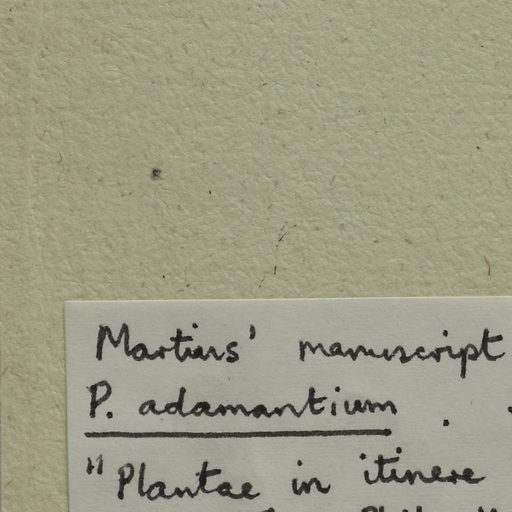 Martius' manuscript
P. adamantium .
"Plantae in itinere